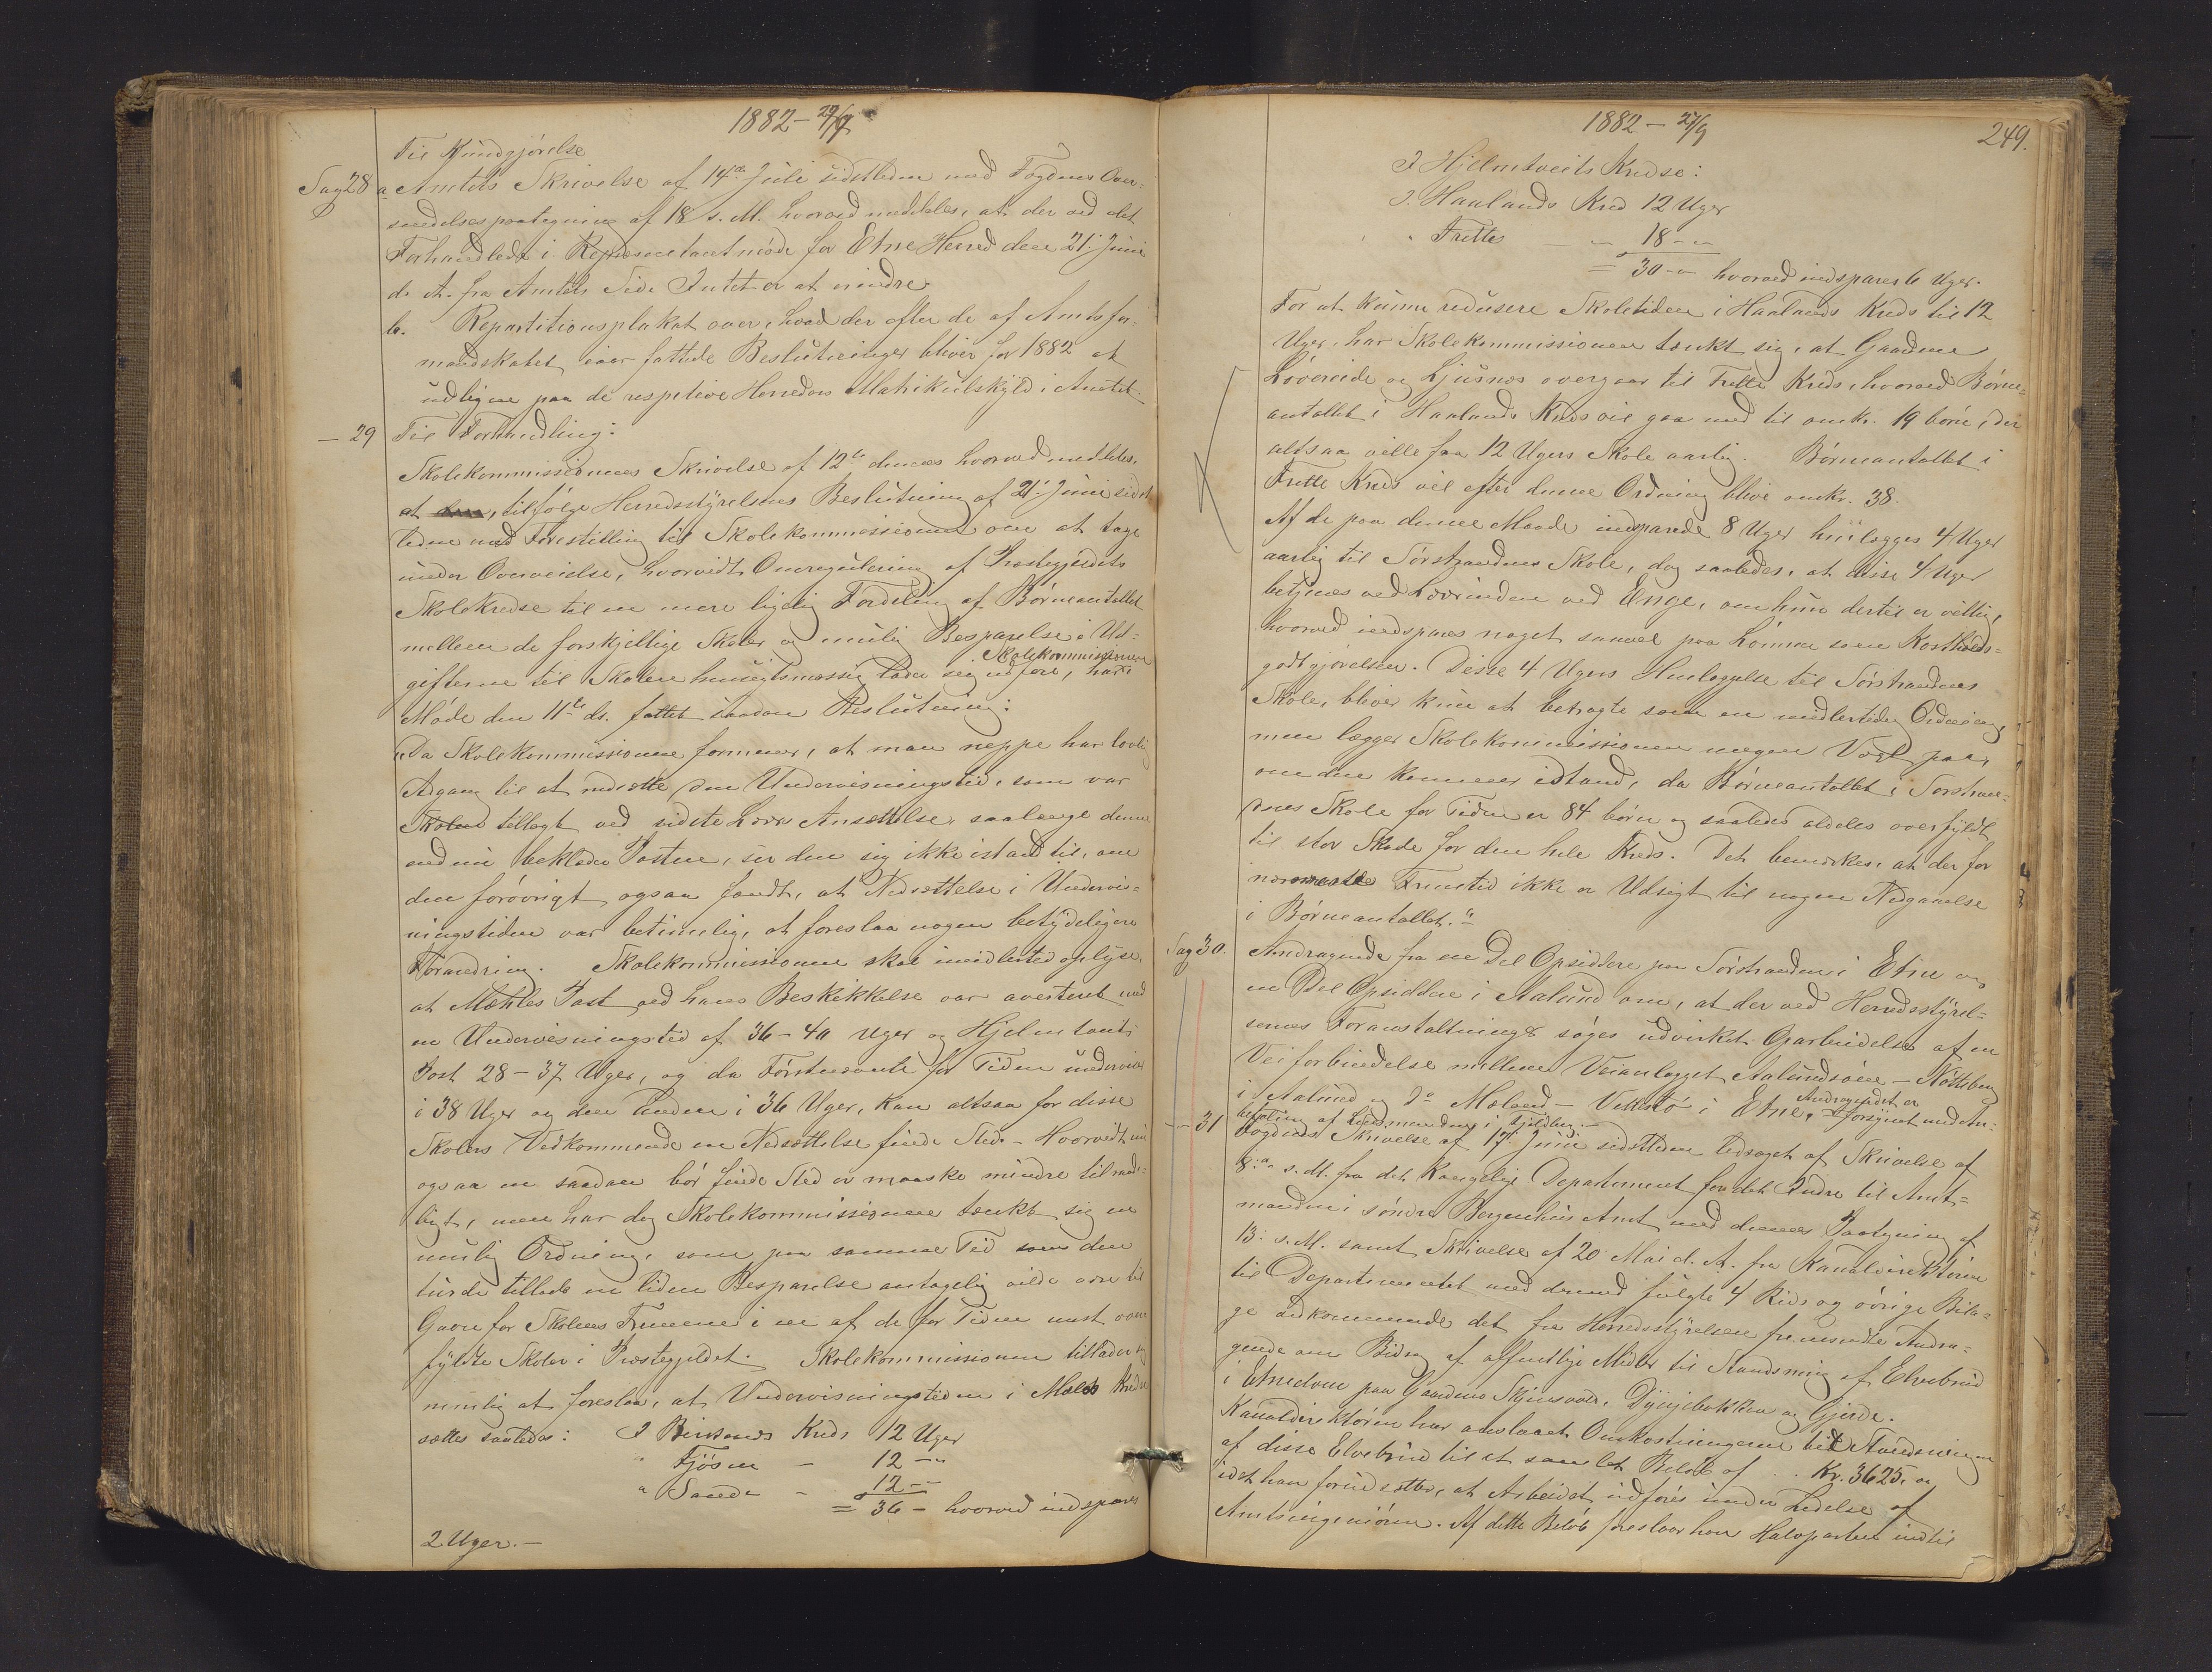 1882 - 27/9
Til Kundgjörelse
Sag 28 a. Amtets Skrivelse af 14de Juli sidstleden med Fogdens Over-
sendelsespaategning af 18 s. M. hvorved meddeles, at der ved det
Forhandlede i Repræsentantmöde for Etne Herred den 21. Juni
d. A. fra Amtets Side Intet er at erindre.
b. Repartitionsplakat over, hvad der efter de af Amtsfor-
mandskabet iaar fattede Beslutninger bliver for 1882 at
udligne paa de respetive Herreders Matrikulskyld i Amtet.
- 29 Til Forhandling:
Skolekommissionens Skrivelse af 12te dennes hvorved meddeles,
at, tilfölge Herredsstyrelsens Beslutning af 21. Juni sidst
leden med Forestilling til Skolekommissionen om at tage
under Overveielse, hvorvidt Omregulering af Præstegjeldets
Skolekredse til en mere ligelig Fordeling af Börneantallet
mellem de forskjellige Skoler og mulig Besparelse i Ud-
gifterne til Skolen hensigtsmæssig lader sig udföre, har Skolekommissionen i
Möde den 11te ds. fattet saadan Beslutning:
"Da Skolekommissionen formener, at man neppe har lovlig
Adgang til at nedsætte den Undervisningstid, som var
Skolen tillagt ved sidste Lærers Ansættelse, saalænge denne
endnu beklæder Posten, ser den sig ikke istand til, om
den forövrigt ogsaa fandt, at Nedsættelse i Undervis-
ningstiden var betimelig, at foreslaa nogen betydeligere
Forandring. Skolekommissionen skal imidlertid oplyse,
at Mæhles Post ved hans Beskikkelse var averteret med
en Undervisningstid af 36 - 40 Uger og Hjelmtveits
Post 28 - 37 Uger, og da Förstnævnte for Tiden underviser
i 38 Uger og den Anden i 36 Uger, kan altsaa for disse
Skolers Vedkommende en Nedsættelse finde Sted. - Hvorvidt nu
ogsaa en saadan bör finde Sted er maaske mindre tilraade-
ligt, men har dog Skolekommissionen tænkt sig en
mulig Ordning, som paa samme Tid som den
turde tillade en liden Besparelse antagelig vilde være til
Gavn for Skolens Fremme i en af de for Tiden mest over-
fyldte Skoler i Præstegjeldet. Skolekommissionen tillader sig
nemlig at foreslaa, at Undervisningstiden i Mæles Kredse
sættes saaledes: I Birkenes Kreds 12 Uger
" Fjösne - 12 - "
" Sande - 12 -
= 36 - hvorved indspares
2 Uger. -
1882 - 27/9 249.
I Hjelmtveits Kredse:
I Haalands Kred 12 Uger
" Frette - 18 - -
= 30 - - hvorved indspares 6 Uger.
For at kunne redusere Skoletiden i Haalands Kreds til 12
Uger, har Skolekommissionen tænkt sig, at Gaardene
Lövereide og Ljusnes overgaar til Frette Kreds, hvorved Börne-
antallet i Haalands Kreds vil gaa ned til omkr. 19 börn, der
altsaa ville faa 12 Ugers Skole aarlig. Börneantallet i
Frette Kreds vil efter denne Ordning blive omkr. 38.
Af de paa denne Maade indsparede 8 Uger henlægges 4 Uger
aarlig til Sörstrandens Skole, dog saaledes, at disse 4 Uger
betjenes ved Lærerinden ved Enge, om hun dertil er villig,
hvorved indspares noget saavel paa Lönnen som Kostholds-
godtgjörelsen. Disse 4 Ugers Henlæggelse til Sörstrandens
Skole, bliver kun at betragte som en midlertidig Ordning,
men lægger Skolekommissionen megen Vægt paa,
om den kommer istand, da Börneantallet i Sörstran-
dens Skole for Tiden er 84 börn og saaledes aldeles overfyldt
til stor Skade for den hele Kreds. Det bemærkes, at der for
nærmeste Fremtid ikke er Udsigt til nogen Nedgang
i Börneantallet."
Sag 30. Andragende fra en Del Opsiddere paa Sörstranden i Etne og
en Del Opsiddere i Aalund om, at der ved Herredsstyrel-
sernes Foranstaltninger söges udvirket Oparbeidelse af en
Veiforbindelse mellem Veianlægget Aalundsöen - Nötteberg
i Aalund og do Mæland - Vikebö i Etne, Andragendet er forsynet med An-
befaling af Lensmanden i Fjeldberg.
- 31 Fogdens Skrivelse af 17. Juni sidstleden ledsaget af Skrivelse af
8de s. M. fra det Kongelige Departement for det Indre til Amt-
manden i söndre Bergenhus Amt med dennes Paategning af
13. s. M. samt Skrivelse af 20 Mai d. A. fra Kanaldirektören
til Departementet med dermed fulgte 4 Rids og övrige Bila-
ge vedkommende det fra Herredsstyrelsen fremsendte Andra-
gende om Bidrag af offentlige Midler til Standsning af Elvebrud
i Etneelven paa Gaardene Skjensvold, Dyngebakken og Gjerde.
Kanaldirektören har anslaaet Omkostningerne til Standsningen
af disse Elvebrud til et samlet Belöb af Kr. 3625, og
idet han forudsætter, at Arbeidet udföres under Ledelse af
Amtsingeniören. Af dette Belöb foreslaar han Halvparten indtil